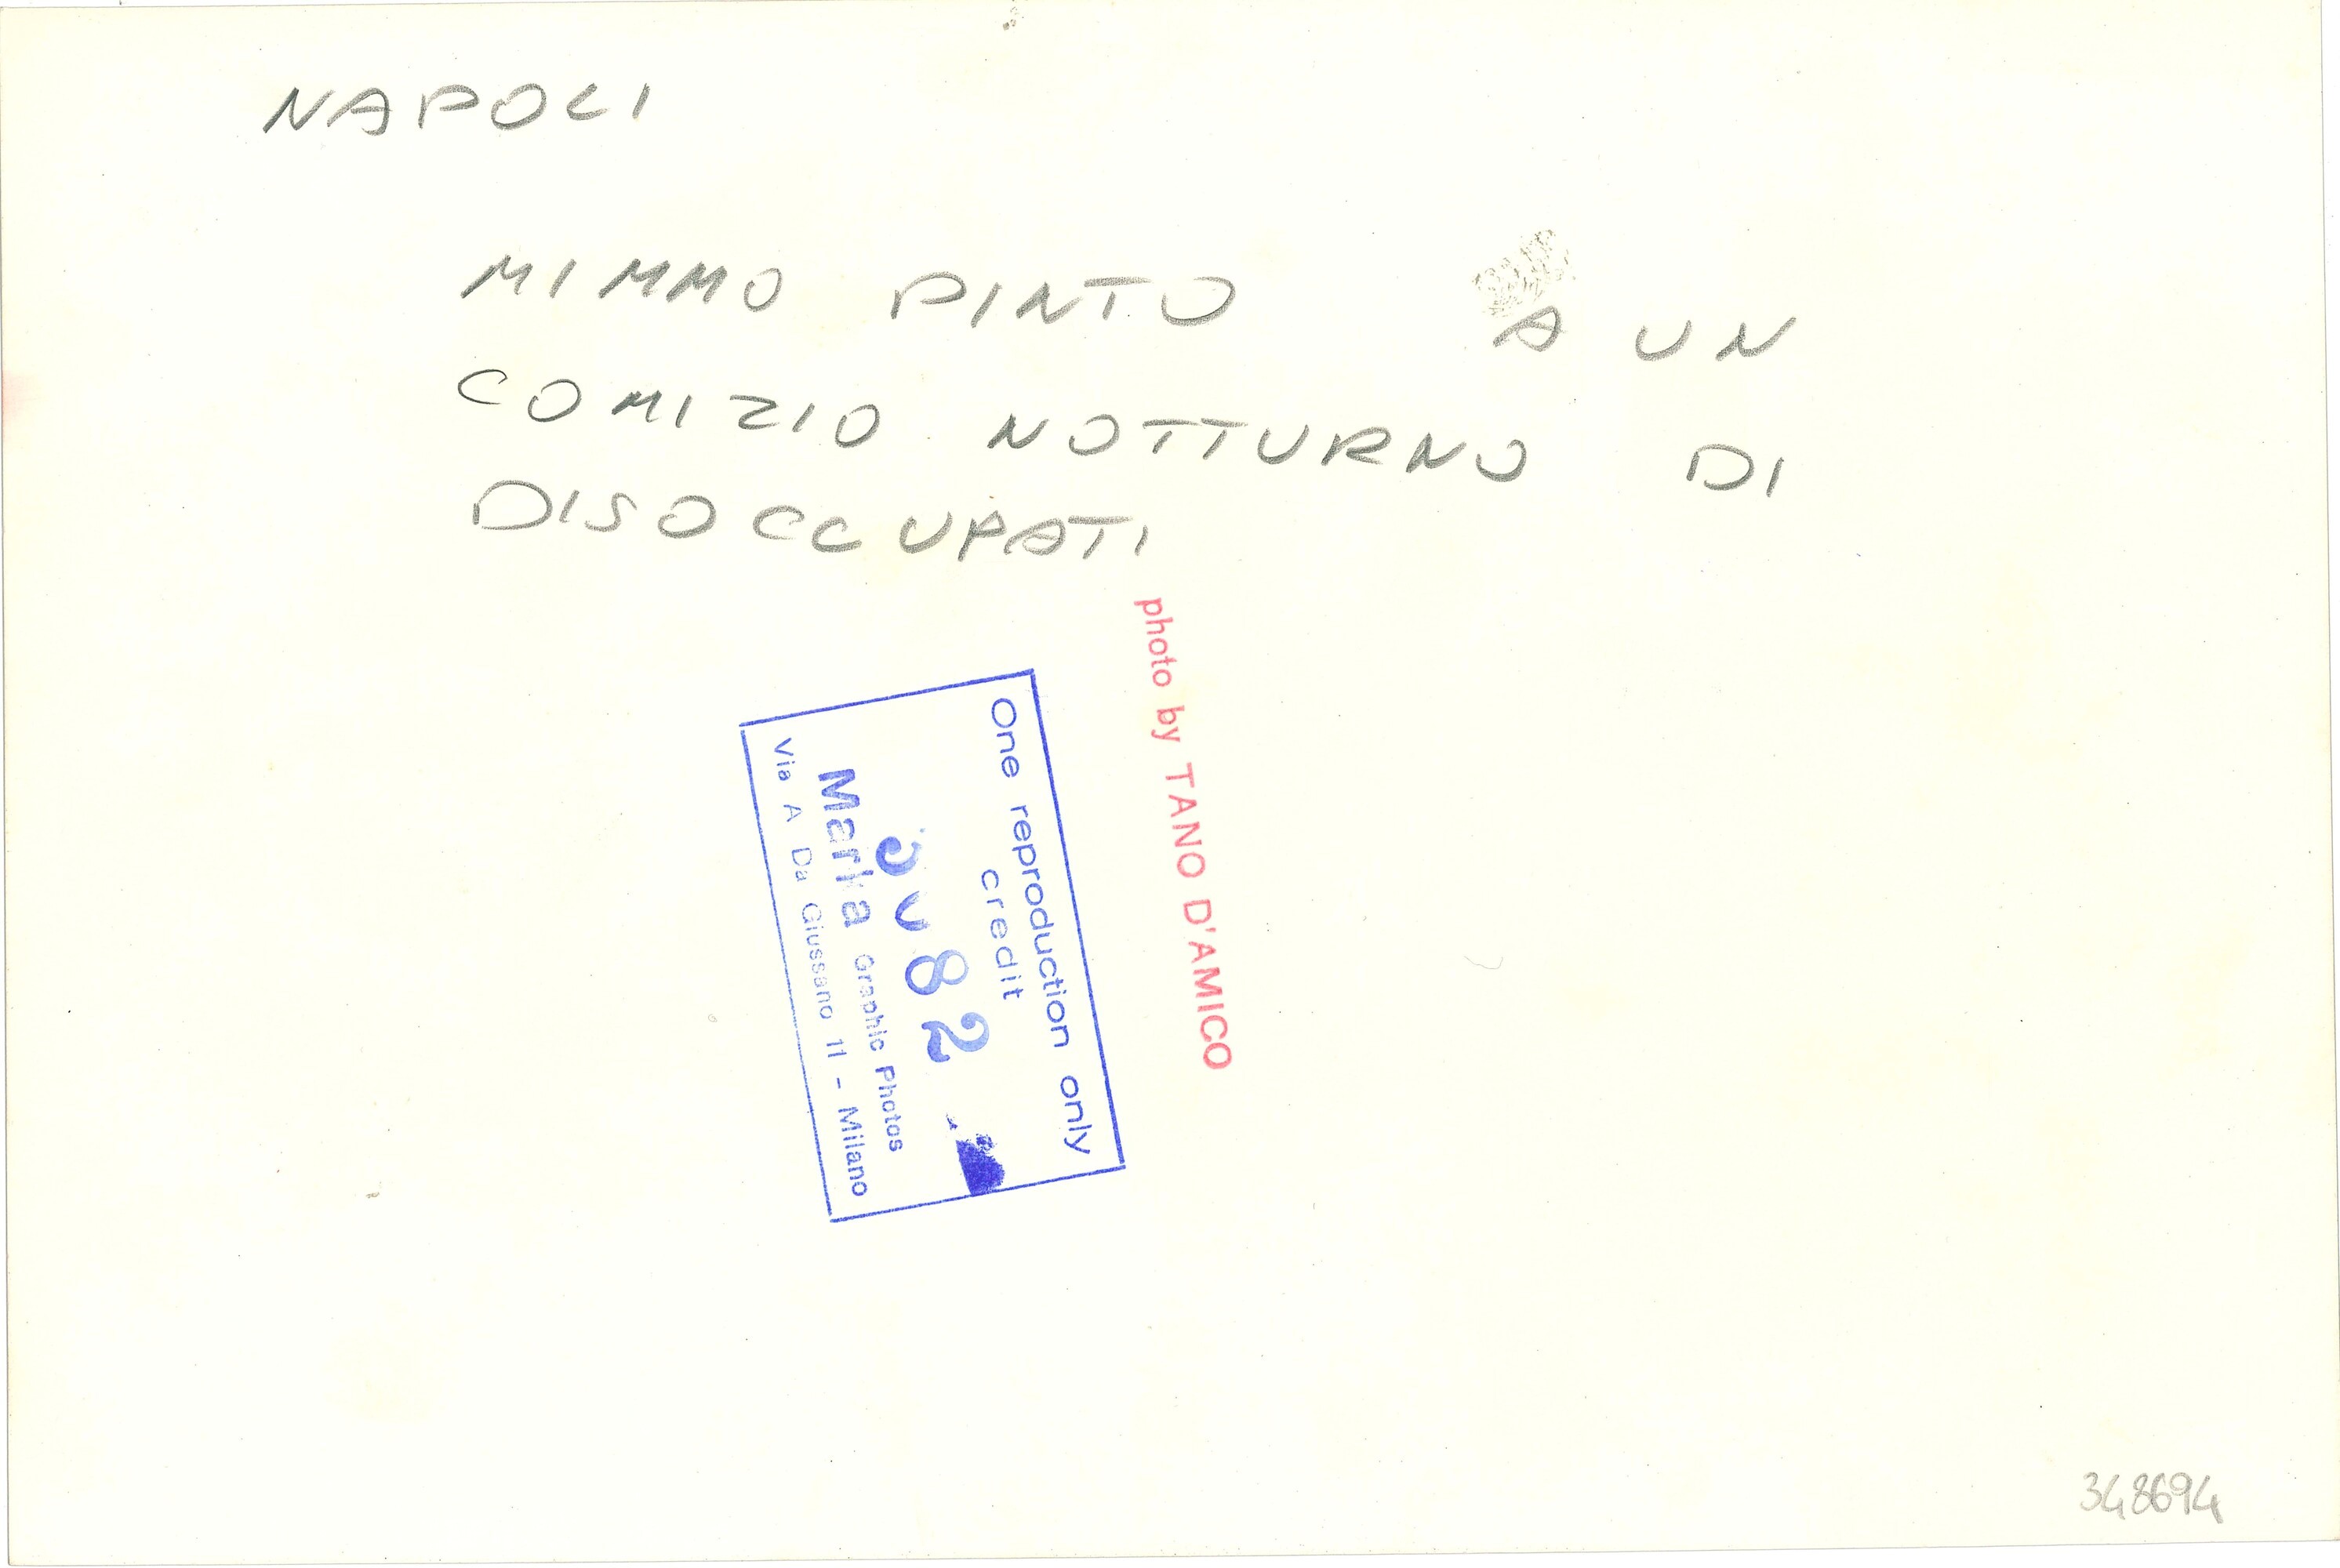 NAPOLI
MIMMO PINTO A UN
COMIZIO NOTTURNO DI
DISOCCUPATI
photo by TANO D'AMICO
One reproduction only
credit
82
Marka Graphic Photos
Via A Da Giussano 11 - Milano
348694